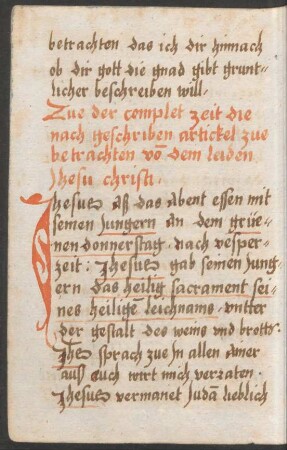 betrachten das ich dir hinnach
ob dir gott die gnad gibt grunt⸗
licher beschreiben will·
Zue der complet zeit die
nach geschriben artickel zue
betrachten võ dem leiden
Jhesu christi·
Jhesus aß das abent essen mit
seinen Jungern an dem grüe⸗
nen donnerstag· nach vesper⸗
zeit: Jhesus gab seinen Jung⸗
ern das heilig sacrament sei⸗
nes heiligē leichnams· vntter
der gestalt des weins vnd brotts·
Jhs sprach zue In allen ainer
auß euch wirt mich verraten·
Jhesus vermanet Judā lieblich